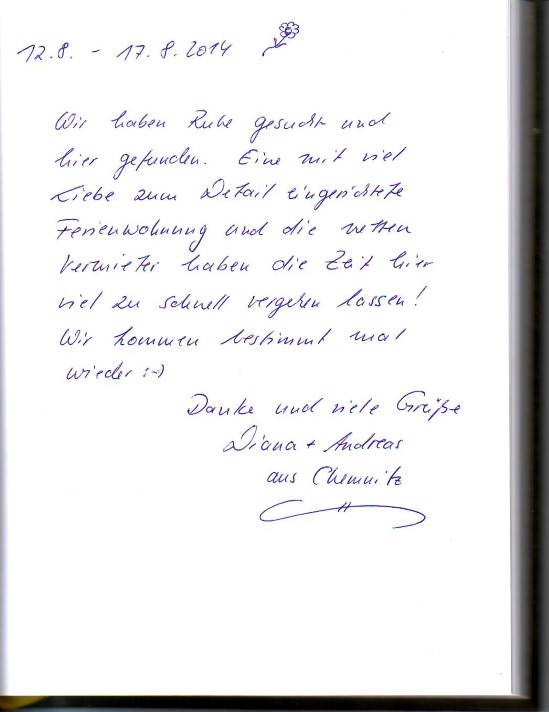 12.8. - 17.8.2014
Wir haben Ruhe gesucht und
hier gefunden. Eine mit viel
Liebe zum Detail eingerichtete
Ferienwohnung und die netten
Vermieter haben die Zeit hier
viel zu schnell vergehen lassen!
Wir kommen bestimmt mal
wieder :-)
Danke und viele Grüße
Diana + Andreas
aus Chemnitz